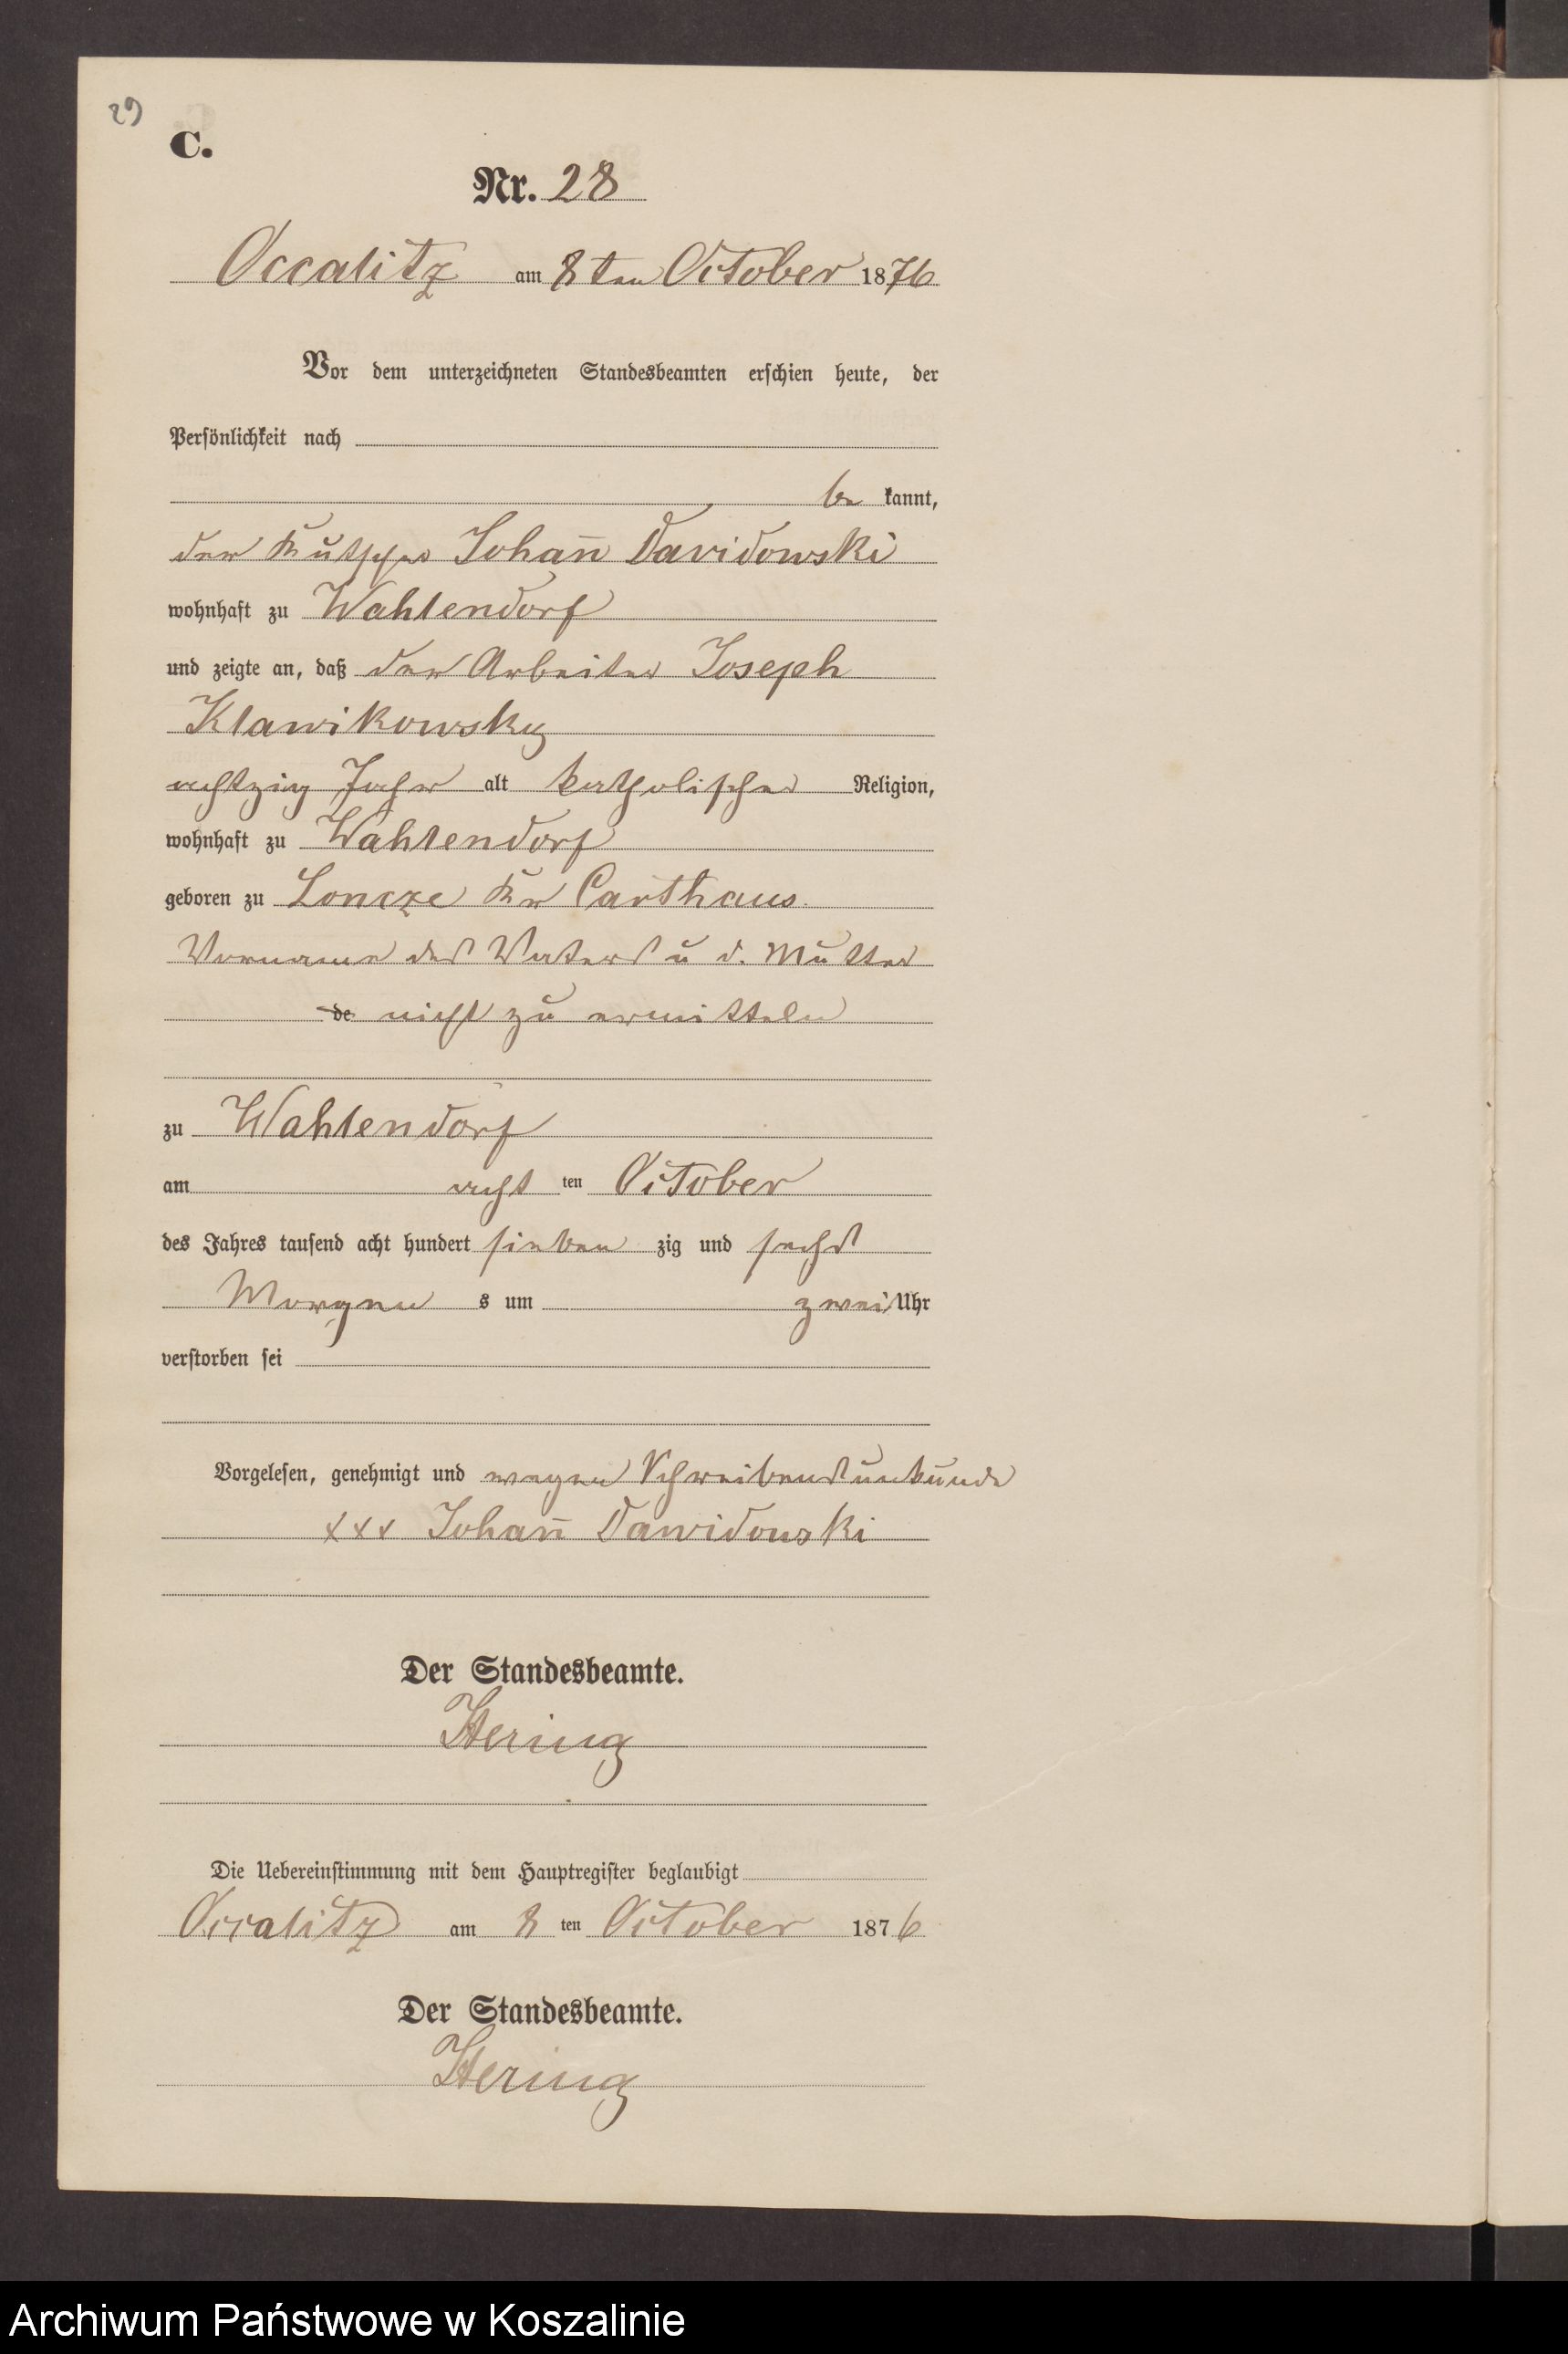 29
C.
Nr. 28
Occalitz am 8ten October 1876
Vor dem unterzeichneten Standesbeamten erschien heute, der
Persönlichkeit nach
be kannt,
der Kutscher Johan̄ Davidowski
wohnhaft zu Wahlendorf
und zeigte an, daß der Arbeiter Joseph
Klawikowsky
achtzig Jahr alt katholischer Religion,
wohnhaft zu Wahlendorf
geboren zu Loncze Kr Carthaus.
Vorname des Vaters u d. Mutter
de nicht zu ermitteln
zu Wahlendorf
am acht ten October
des Jahres tausend acht hundert sieben zig und sechs
Morgen s um zwei Uhr
verstorben sei
Vorgelesen, genehmigt und wegen Schreibensunkunde
xxx Johan̄ Dawidowski
Der Standesbeamte.
Hering
Die Uebereinstimmung mit dem Hauptregister beglaubigt
Occalitz am 8 ten October 1876
Der Standesbeamte.
Hering
Archiwum Państwowe w Koszalinie